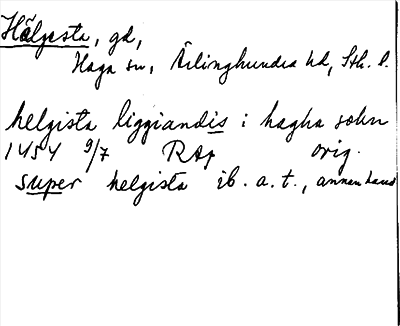 Hälgesta, gd,
Haga sn, Ärlinghundra hd, Sth. l.
helgista liggiandis i hagha sokn
1454 9/7 RAp orig.
super helgista ib. a. t., annan hand